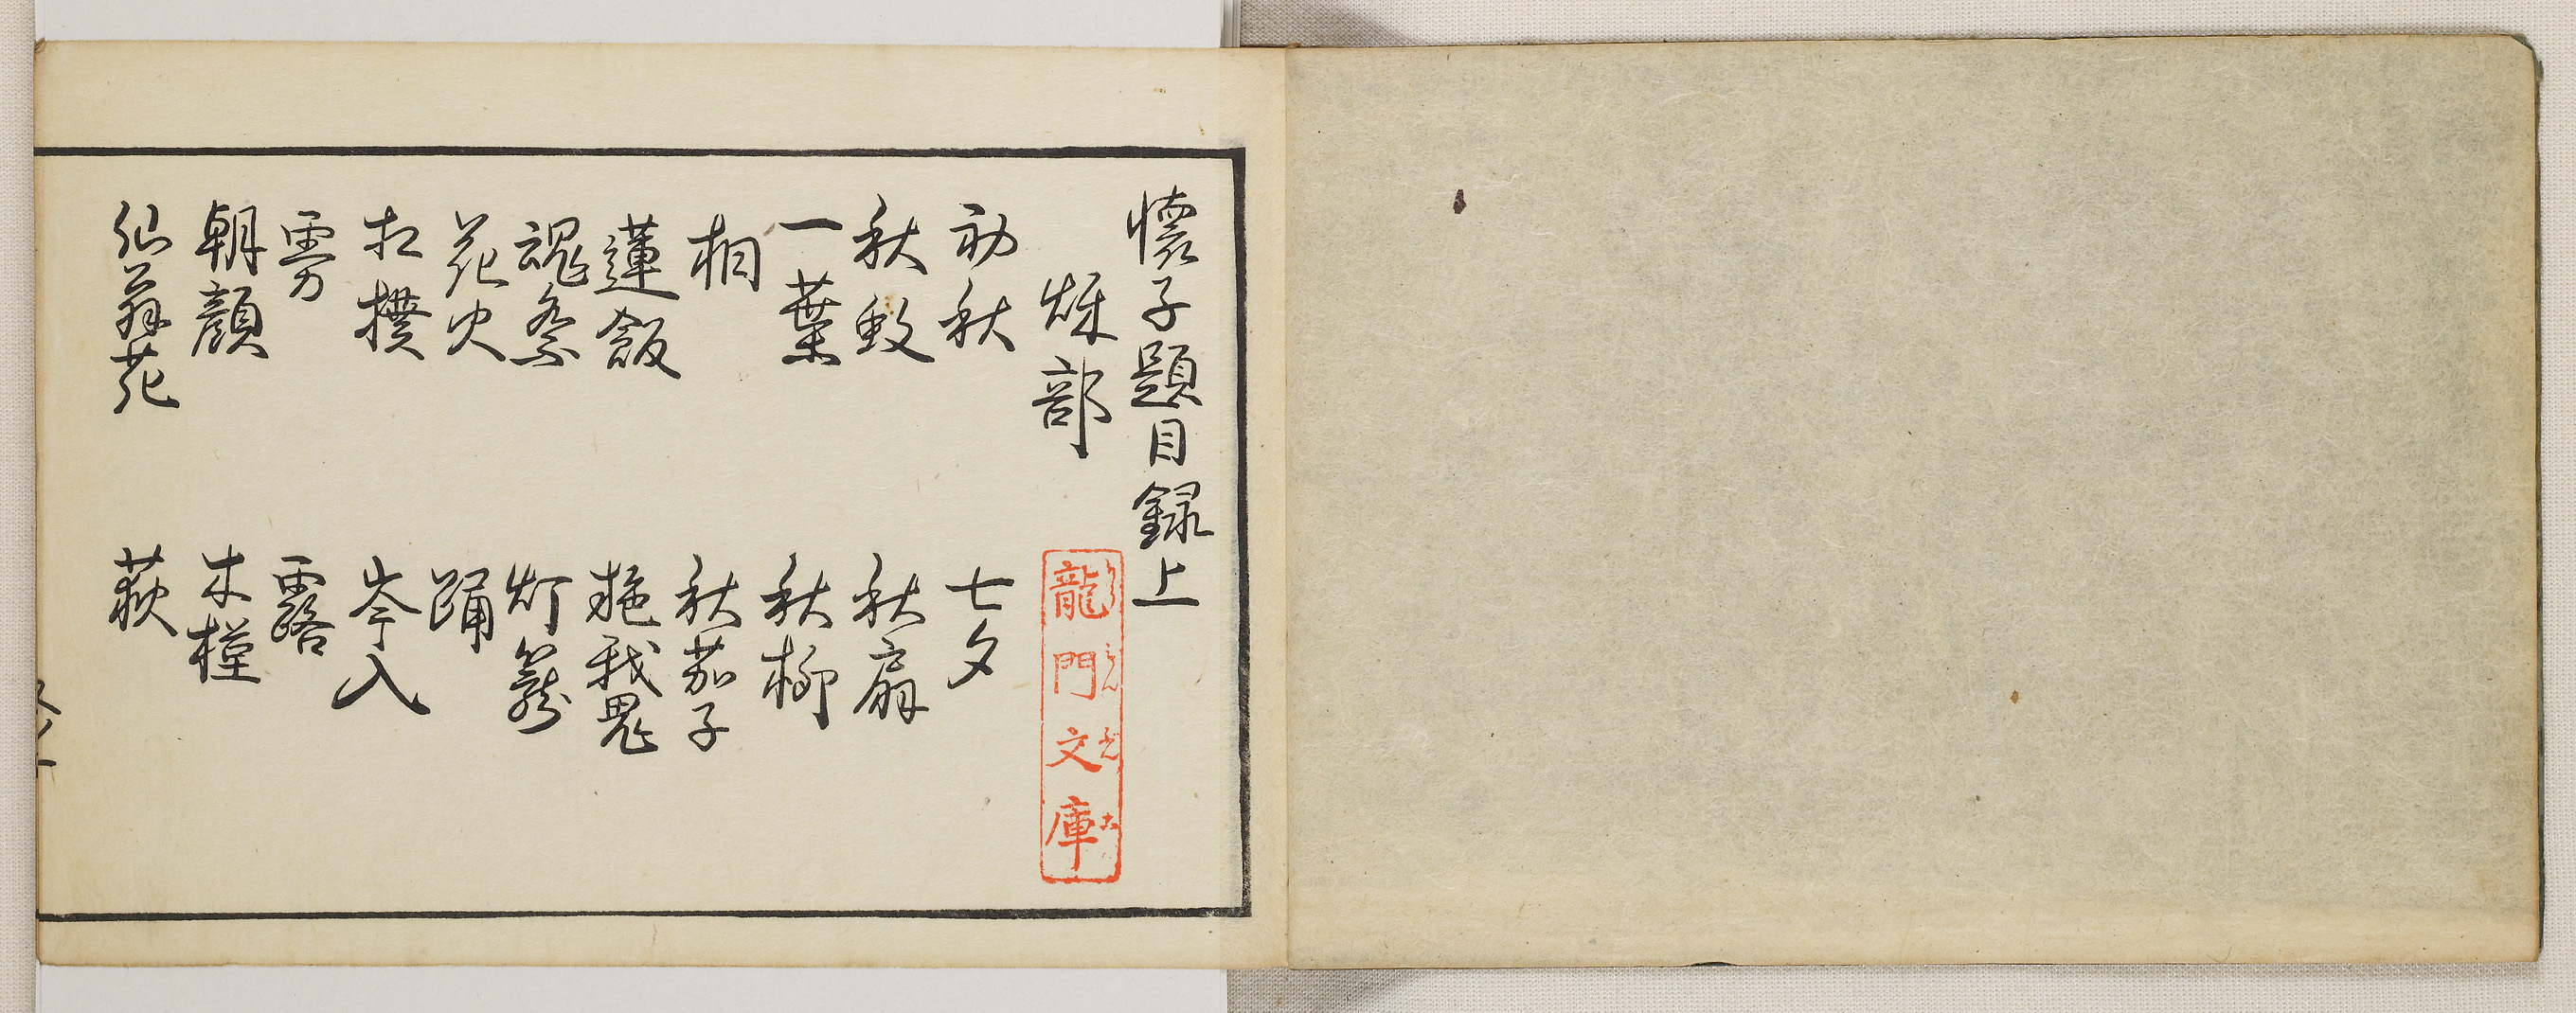 懐子題目録上
秌部
龍門文庫
りうもんぶんこ
初秋　七夕
秋蚊　秋扇
一葉　秋柳
桐　秋茄子
蓮飯　施我鬼
魂祭　灯籠
花火　踊
相撲　岑入
霧　露
朝顔　木槿
仙翁花　荻